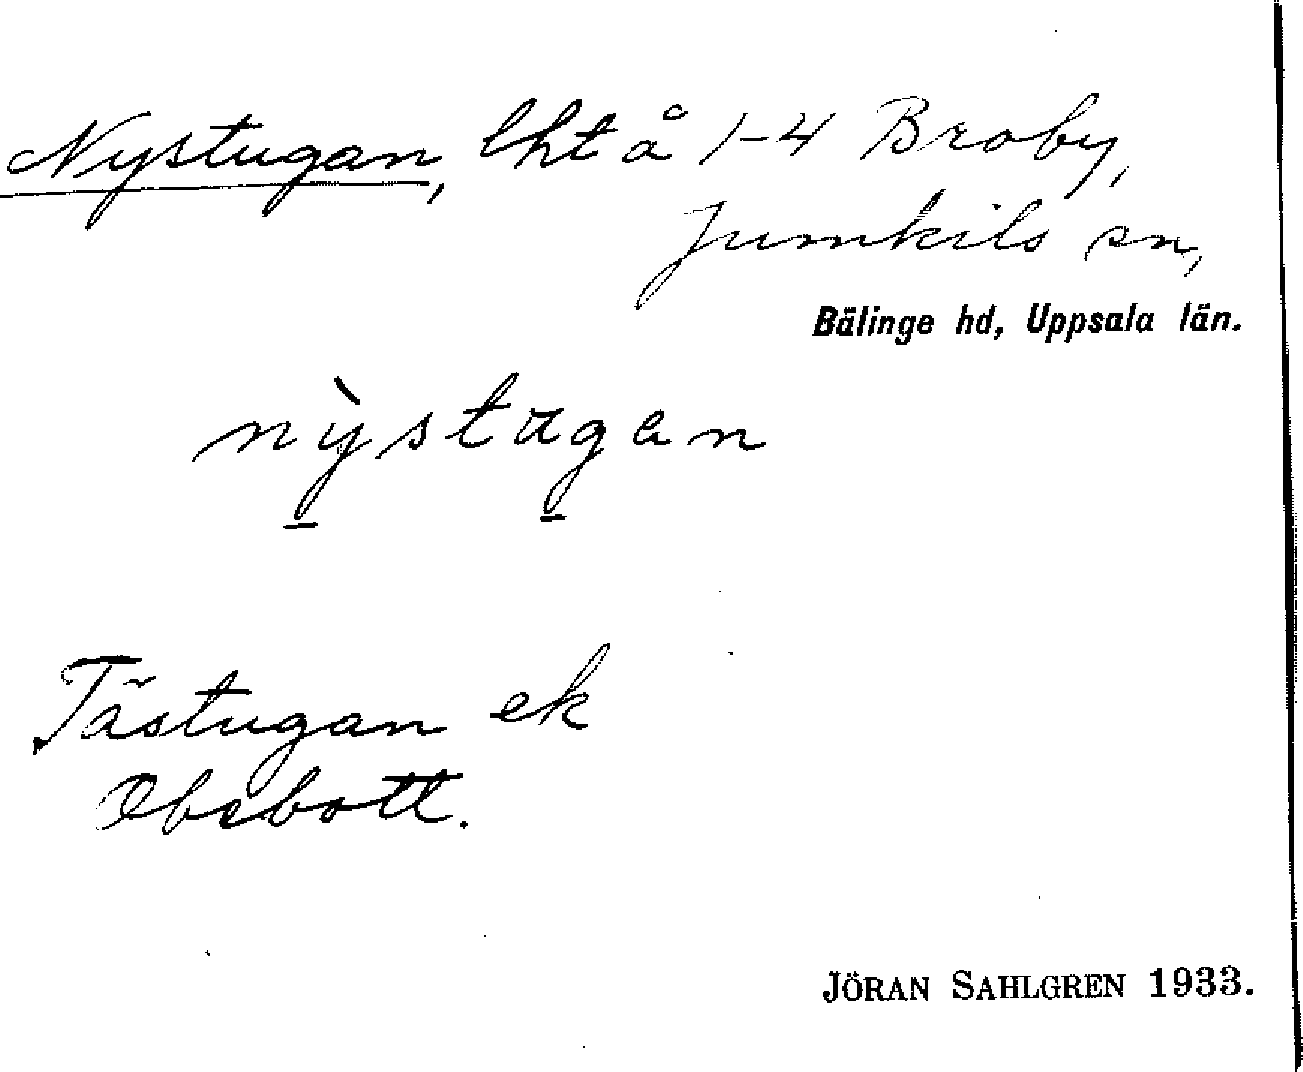 Nystugan, lht å 1-4 Broby,
Jumkils sn,
Bälinge hd, Uppsala län.
nỳstugan
Tästugan ek
Obebott.
JÖRAN SAHLGREN 1933.